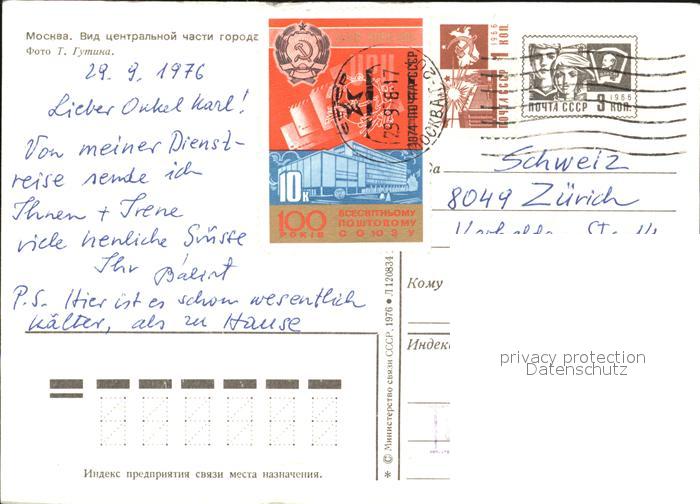 Москва. Вид центральной части города
Фото Т. Гутина.
29. 9. 1976
Lieber Onkel Karl!
Von meiner Dienst-
reise sende ich
Ihnen + Irene
viele herzliche Grüsse
Ihr Bálint
P.S. Hier ist es schon wesentlich
kälter, als zu Hause
10к
100
РОКІВ
ВСЕСВІТНЬОМУ
ПОШТОВОМУ
СОЮЗУ
1974 ПОЧТА СССР
МОСКВА
1966
1 КОП.
ПОЧТА СССР
1966
ПОЧТА СССР 3 КОП.
Schweiz
8049 Zürich
Кому
Индекс
© Министерство связи СССР, 1976 • Л 120834
privacy protection
Datenschutz
Индекс предприятия связи места назначения.